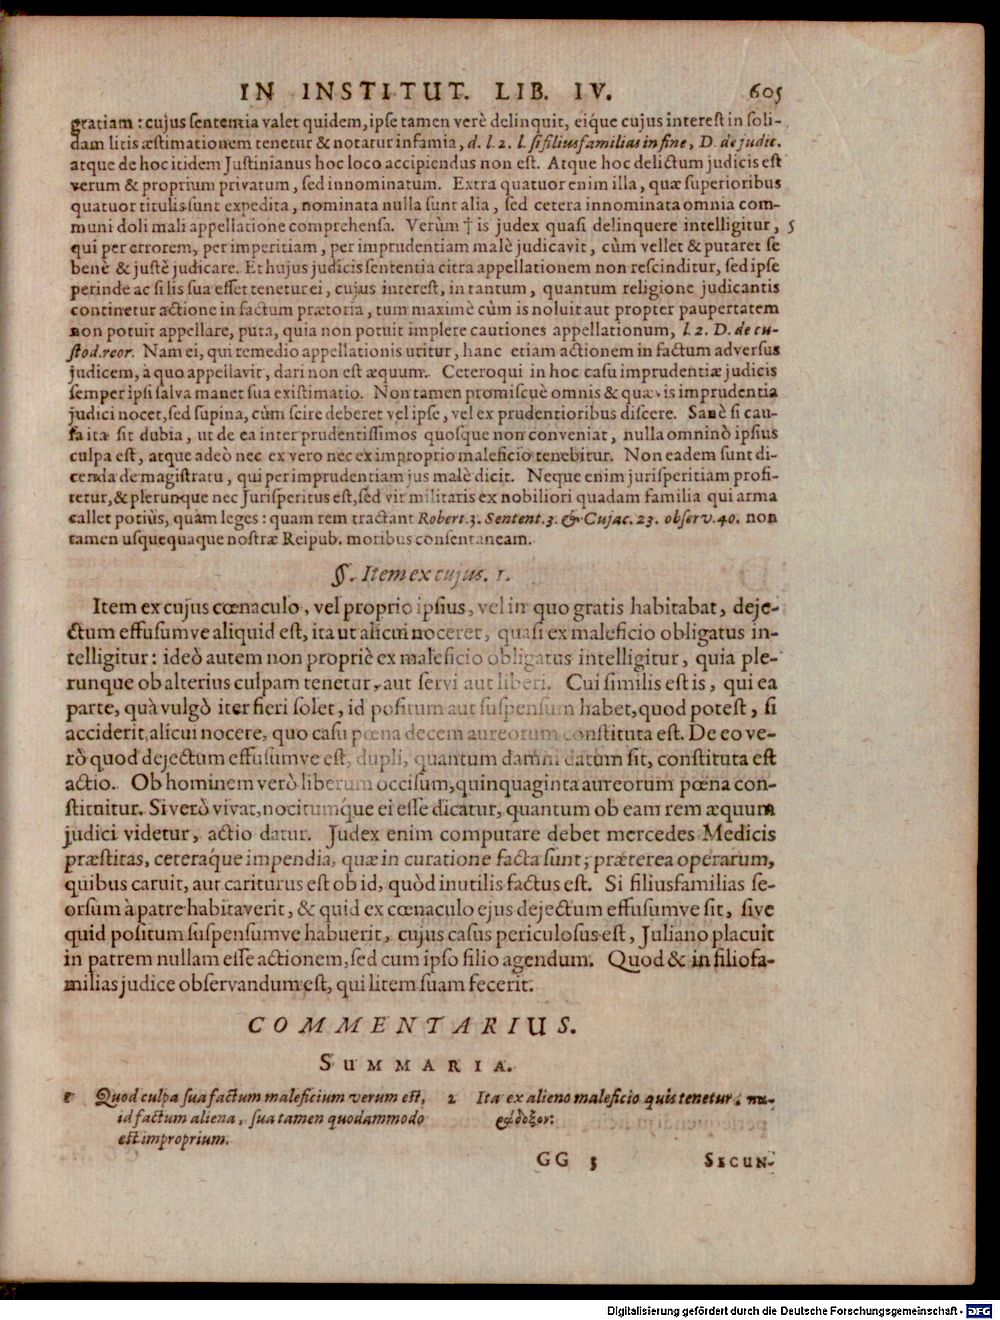 IN INSTITUT. LIB. IV. 605
gratiam: cujus sententia valet quidem, ipse tamen verè delinquit, eique cujus interest in soli-
dam litis æstimationem tenetur & notatur infamia, d. l. 2. l. si filiusfamilias in fine, D. de judic.
atque de hoc itidem Justinianus hoc loco accipiendus non est. Atque hoc delictum judicis est
verum & proprium privatum, sed innominatum. Extra quatuor enim illa, quæ superioribus
quatuor titulis sunt expedita, nominata nulla sunt alia, sed cetera innominata omnia com-
muni doli mali appellatione comprehensa. Verùm † is judex quasi delinquere intelligitur, 5
qui per errorem, per imperitiam, per imprudentiam malè judicavit, cùm vellet & putaret se
benè & justè judicare. Et hujus judicis sententia citra appellationem non rescinditur, sed ipse
perinde ac si lis sua esset tenetur ei, cujus interest, in tantum, quantum religione judicantis
continetur actione in factum prætoria, tum maximè cùm is noluit aut propter paupertatem
non potuit appellare, puta, quia non potuit implere cautiones appellationum, l. 2. D. de cu-
stod. reor. Nam ei, qui remedio appellationis utitur, hanc etiam actionem in factum adversus
judicem, à quo appellavit, dari non est æquum. Ceteroqui in hoc casu imprudentiæ judicis
semper ipsi salva manet sua existimatio. Non tamen promiscuè omnis & quævis imprudentia
judici nocet, sed supina, cùm scire deberet vel ipse, vel ex prudentioribus discere. Sanè si cau-
sa ita sit dubia, ut de ea inter prudentissimos quosque non conveniat, nulla omninò ipsius
culpa est, atque adeò nec ex vero nec ex improprio maleficio tenebitur. Non eadem sunt di-
cenda de magistratu, qui per imprudentiam jus malè dicit. Neque enim jurisperitiam profi-
tetur, & plerunque nec Jurisperitus est, sed vir militaris ex nobiliori quadam familia qui arma
callet potiùs, quàm leges: quam rem tractant Robert. 3. Sentent. 3. & Cujac. 23. observ. 40. non
tamen usquequaque nostræ Reipub. moribus consentaneam.
§. Item ex cujus. 1.
Item ex cujus cœnaculo, vel proprio ipsius, vel in quo gratis habitabat, deje-
ctum effusumve aliquid est, ita ut alicui noceret, quasi ex maleficio obligatus in-
telligitur: ideò autem non propriè ex maleficio obligatus intelligitur, quia ple-
runque ob alterius culpam tenetur, aut servi aut liberi. Cui similis est is, qui ea
parte, quà vulgò iter fieri solet, id positum aut suspensum habet, quod potest, si
acciderit, alicui nocere, quo casu pœna decem aureorum constituta est. De eo ve-
rò quod dejectum effusumve est, dupli, quantum damni datum sit, constituta est
actio. Ob hominem verò liberum occisum, quinquaginta aureorum pœna con-
stituitur. Si verò vivat, nocitumq́ue ei esse dicatur, quantum ob eam rem æquum
judici videtur, actio datur. Judex enim computare debet mercedes Medicis
præstitas, ceteraq́ue impendia, quæ in curatione facta sunt; præterea operarum,
quibus caruit, aut cariturus est ob id, quòd inutilis factus est. Si filiusfamilias se-
orsum à patre habitaverit, & quid ex cœnaculo ejus dejectum effusumve sit, sive
quid positum suspensumve habuerit, cujus casus periculosus est, Juliano placuit
in patrem nullam esse actionem, sed cum ipso filio agendum. Quod & in filiofa-
milias judice observandum est, qui litem suam fecerit.
COMMENTARIUS.
SUMMARIA.
Quod culpa sua factum maleficium verum est,
id factum aliena, sua tamen quodammodo
est improprium.
2 Ita ex alieno maleficio quis tenetur,
GG 3 SECUN-
Digitalisierung gefördert durch die Deutsche Forschungsgemeinschaft - DFG